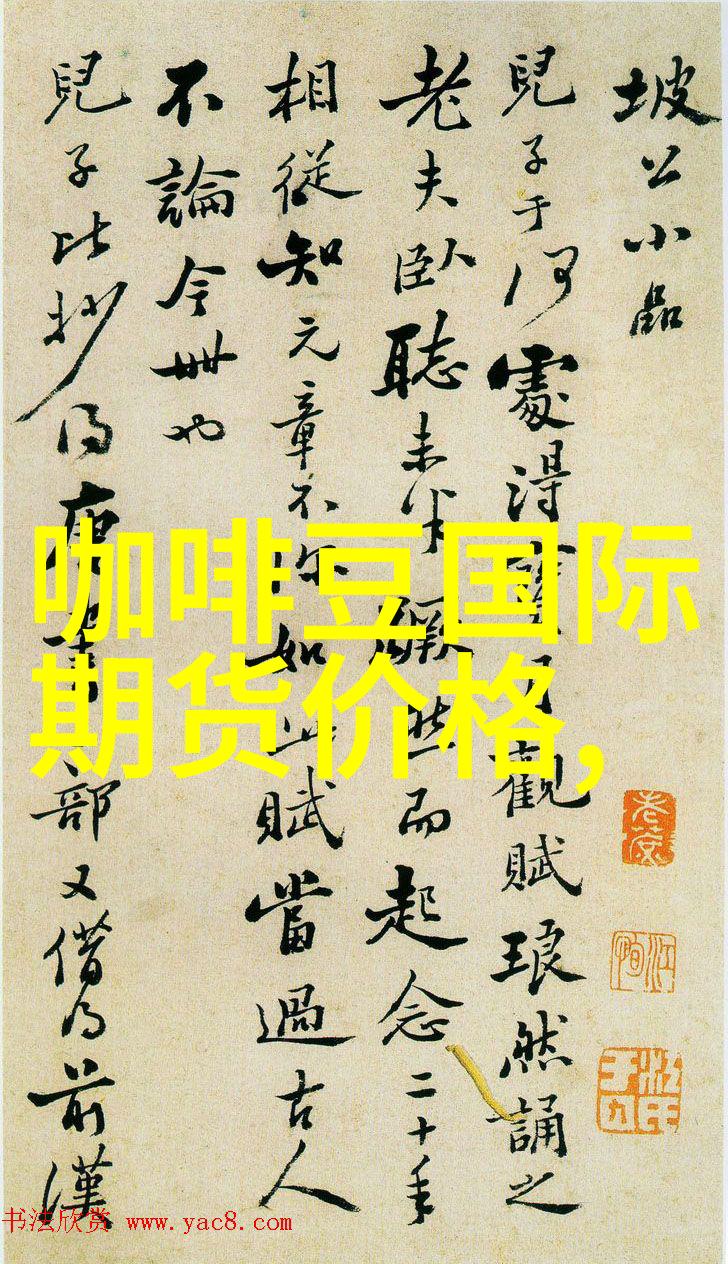 坡公小品
兒子于何處得寶月觀賦琅然誦之
老夫臥聽未半蹶然而起念二十年
相從知元章不盡如此賦當過古人
不論今世也
兒子比抄得唐書一部又借得前漢
咖啡豆国际
期货价格,
书法欣赏 www.yac8.com